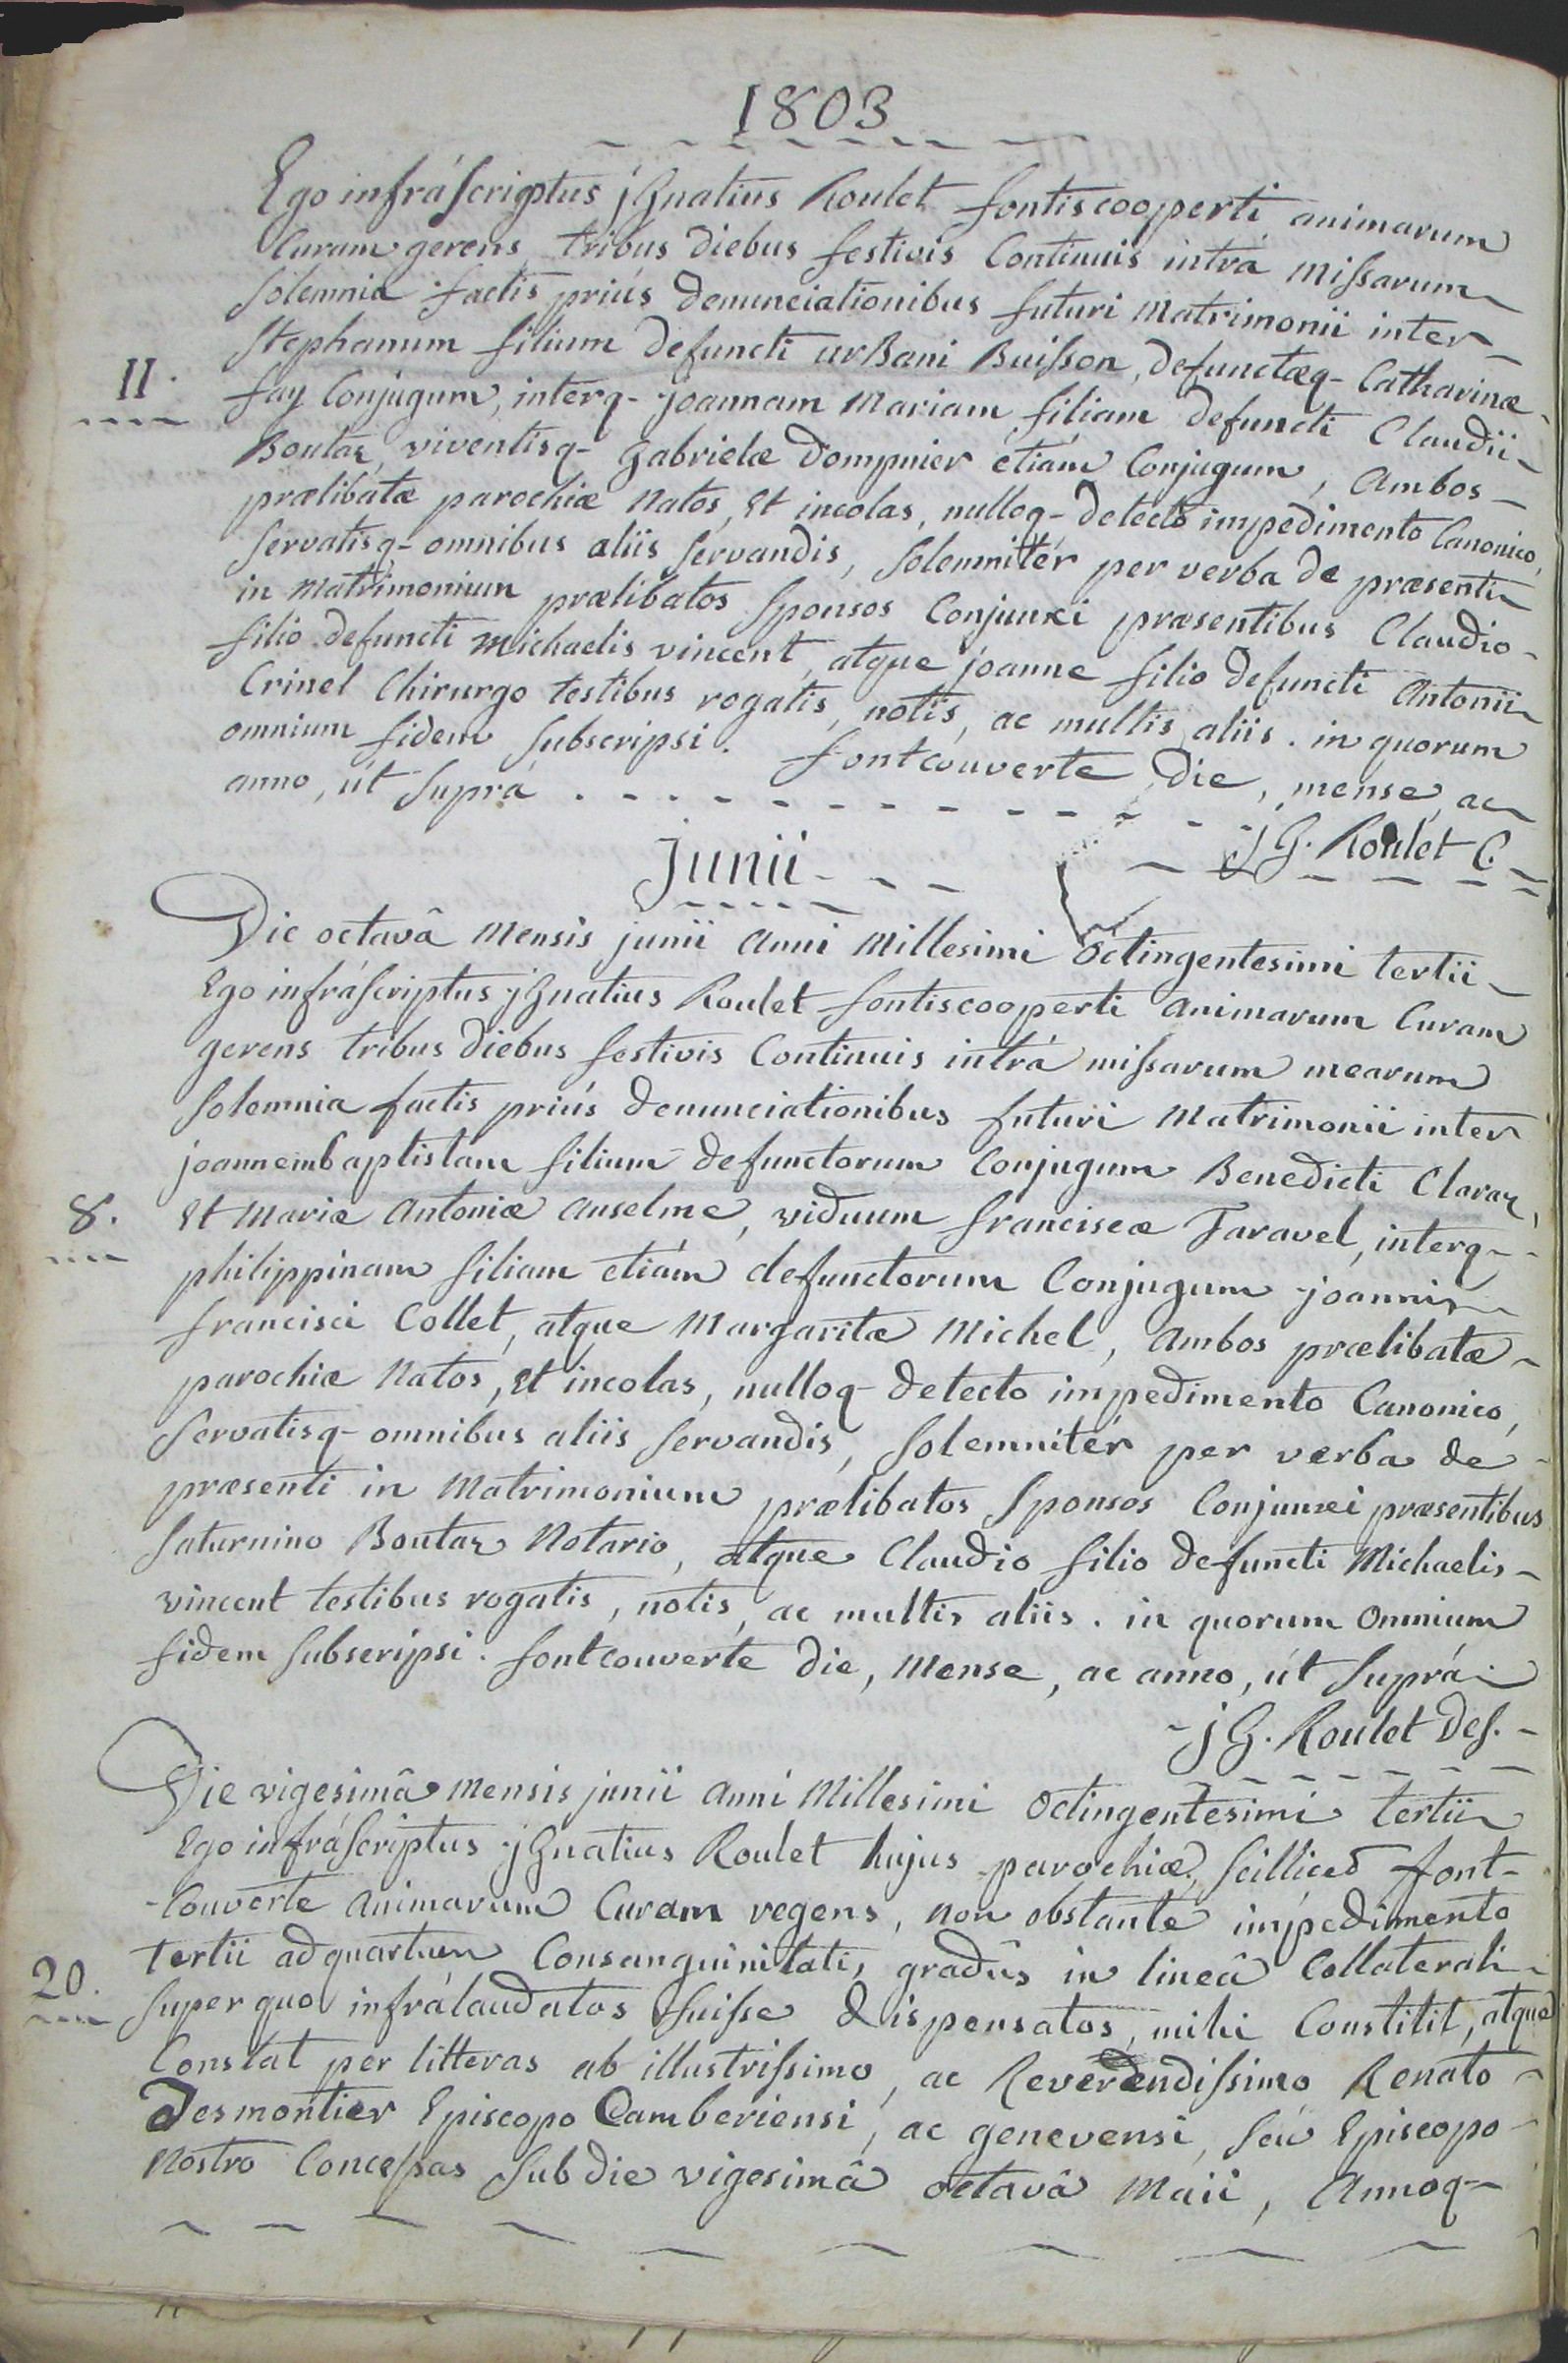 1803
Ego infráscriptus jGnatius Roulet fontiscooperti animarum
Curam gerens, tribus diebus festivis Continuis intrá missarum
solemnia factis priús denunciationibus futuri Matrimonii inter
Stephanum filium defuncti urBani Buisson, defunctæq- Catharinæ
II.
fay Conjugum, interq- joannam Mariam filiam defuncti Claudii
Boutaz, viventisq- gabrielæ Dompnier étiám Conjugum, Ambos
prælibatæ parochiæ Natos, Et incolas, nulloq- detecto impedimento Canonico,
servatisq- omnibus aliis servandis, solemnitér per verba de præsenti
in Matrimonium prælibatos Sponsos Conjunxi præsentibus Claudio
filio defuncti Michaelis vincent, atque joanne filio defuncti Antonii
Crinel Chirurgo testibus rogatis, notis, ac multis aliis. in quorum
omnium fidem subscripsi. fontcouverte die, mense, ac
anno, út suprá
jG. Roulet C.
junii
Die octavâ Mensis junii Anni Millesimi Octingentesimi tertii
Ego infráscriptus jGnatius Roulet fontiscooperti Animarum Curam
gerens tribus diebus festivis Continuis intrá missarum mearum
solemnia factis priús denunciationibus futuri Matrimonii inter
joannembaptistam filium defunctorum Conjugum Benedicti Claraz,
8.
Et Mariæ Antoniæ Anselme, viduum franciscæ Taravel, interq-
philippinam filiam étiám defunctorum Conjugum joannis
francisci Collet, atque Margaritæ Michel, Ambos prælibatæ
parochiæ Natos, Et incolas, nulloq- detecto impedimento Canonico,
servatisq- omnibus aliis servandis, solemnitér per verba de
præsenti in Matrimonium prælibatos Sponsos Conjunxi præsentibus
saturnino Boutaz Notario, atque Claudio filio defuncti Michaelis
vincent testibus rogatis, notis, ac multis aliis. in quorum omnium
fidem subscripsi. fontcouverte die, Mense, ac anno, út suprá
jG. Roulet des.
Die vigesimâ Mensis junii Anni Millesimi Octingentesimi tertii
Ego infráscriptus jGnatius Roulet hujus parochiæ, scilliced font-
-Couverte Animarum Curam regens, non obstante impedimento
tertii ad quartum Consanguinitatis gradûs in lineâ Collaterali
20.
super quo infrálaudatos fuisse dispensatos, mihi Constitit, atque
Constat per litteras ab illustrissimo, ac Reverendissimo Renato
Desmontier Episcopo Camberiensi, ac genevensi, seu Episcopo
Nostro Concessas sub die vigesimâ octavâ Maii, Annoq-